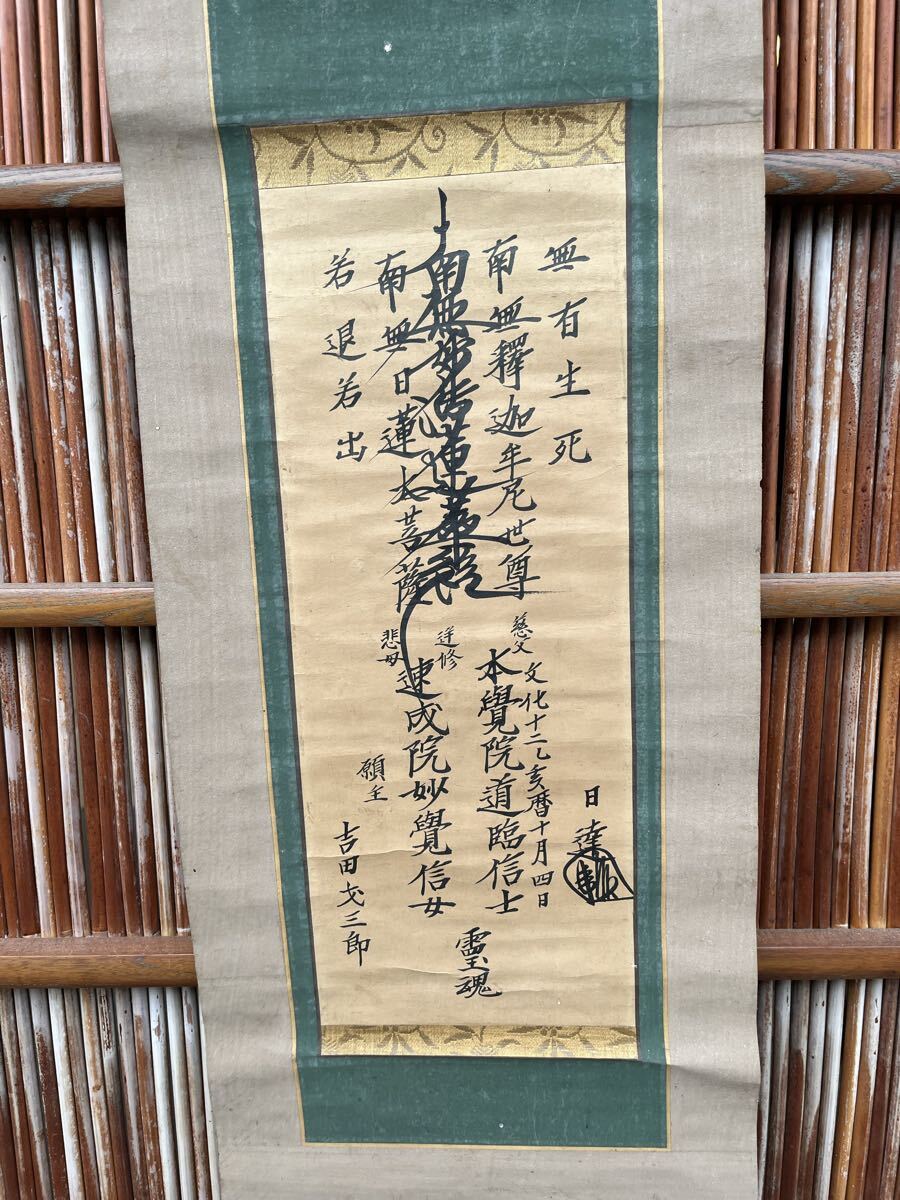 無有生死
南無釋迦牟尼世尊
南無妙法蓮華経
南無日蓮大菩薩
若退若出
慈父
文化十二乙亥暦十月四日
本覺院道臨信士
逆修
悲母
速成院妙覺信女
靈魂
願主
吉田戈三郎
日達